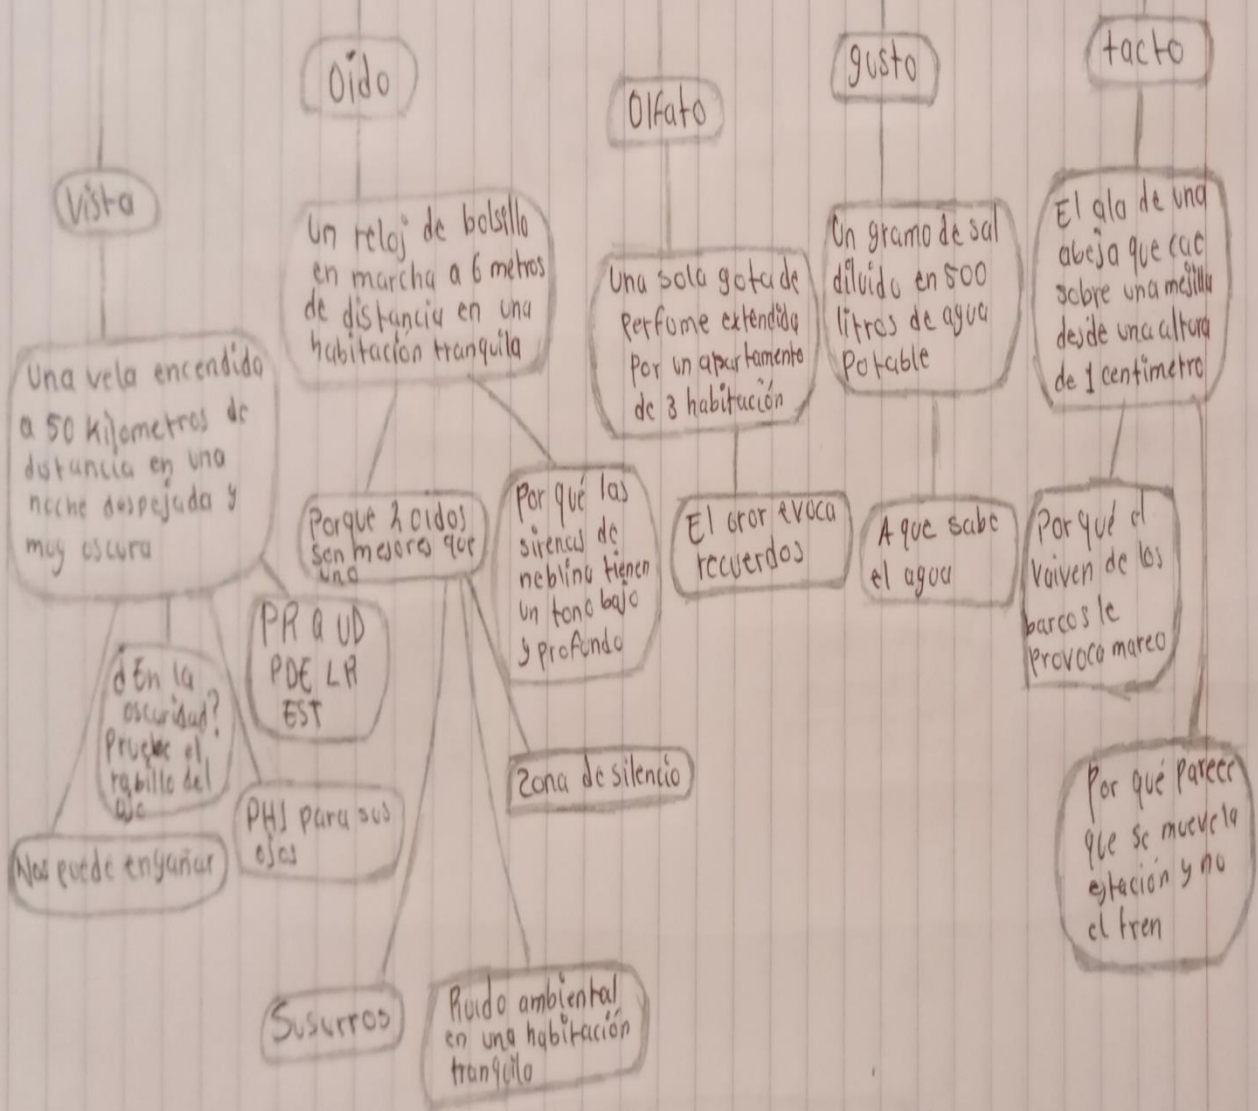 Vista
Una vela encendida
a 50 Kilometros de
distancia en una
noche despejada y
muy oscura
Nos puede engañar
¿En la
oscuridad?
Pruebe el
rabillo del
ojo
PHI para sus
ojos
PR a UD
PDE LA
EST
Oido
Un reloj de bolsillo
en marcha a 6 metros
de distancia en una
habitación tranquila
Porque 2 oidos
son mejores que
uno
Susurros
Ruido ambiental
en una habitación
tranquila
Zona de silencio
Por qué las
sirenas de
neblina tienen
un tono bajo
y profundo
Olfato
Una sola gota de
Perfome extendida
Por un apartamento
de 3 habitación
El oror evoca
recuerdos
gusto
Un gramo de sal
diluido en 500
litros de agua
Potable
A que sabe
el agua
tacto
El ala de una
abeja que cae
sobre una mejilla
desde una altura
de 1 centimetro
Por qué el
vaiven de los
barcos le
Provoca mareo
Por qué Parece
que se mueve la
estación y no
el tren